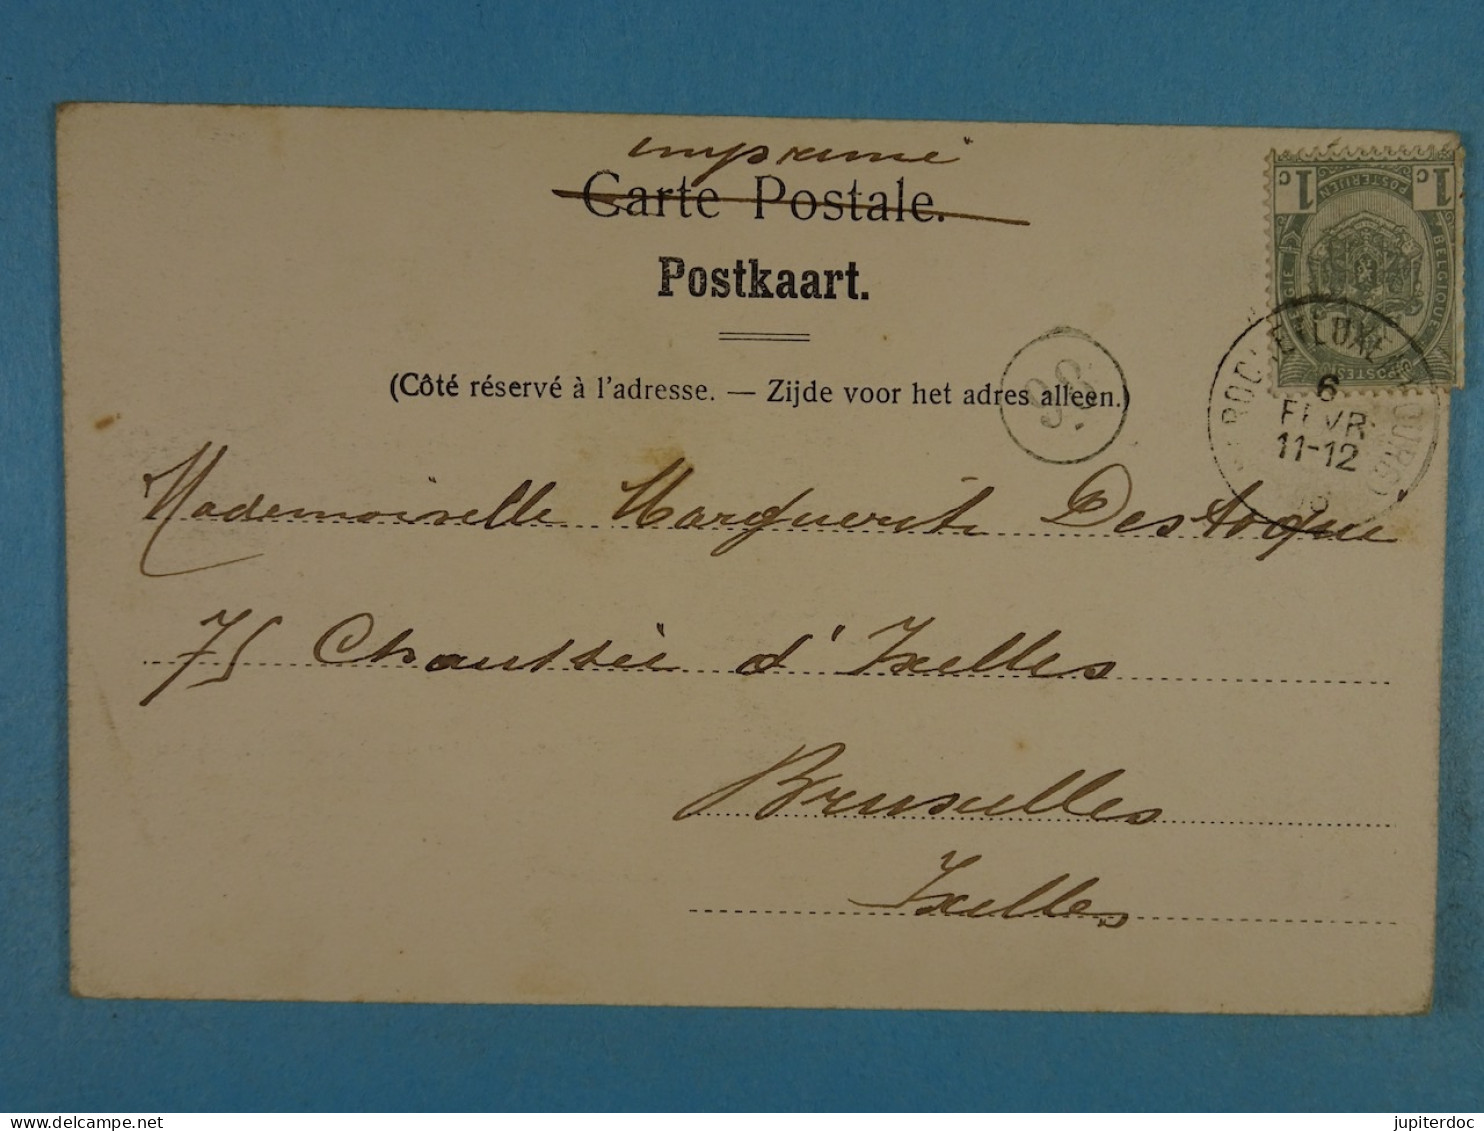 imprimé
Carte Postale.
Postkaart.
(Côté réservé à l'adresse. — Zijde voor het adres alleen.)
98
1c 1c
POSTERIJEN
BELGIQUE
POSTES
ROCHE (LUXEMBOURG)
6
FEVR
11-12
Mademoiselle Marguerite Destoque
75 Chaussée d'Ixelles
Bruxelles
Ixelles
delcampe.net
jupiterdoc